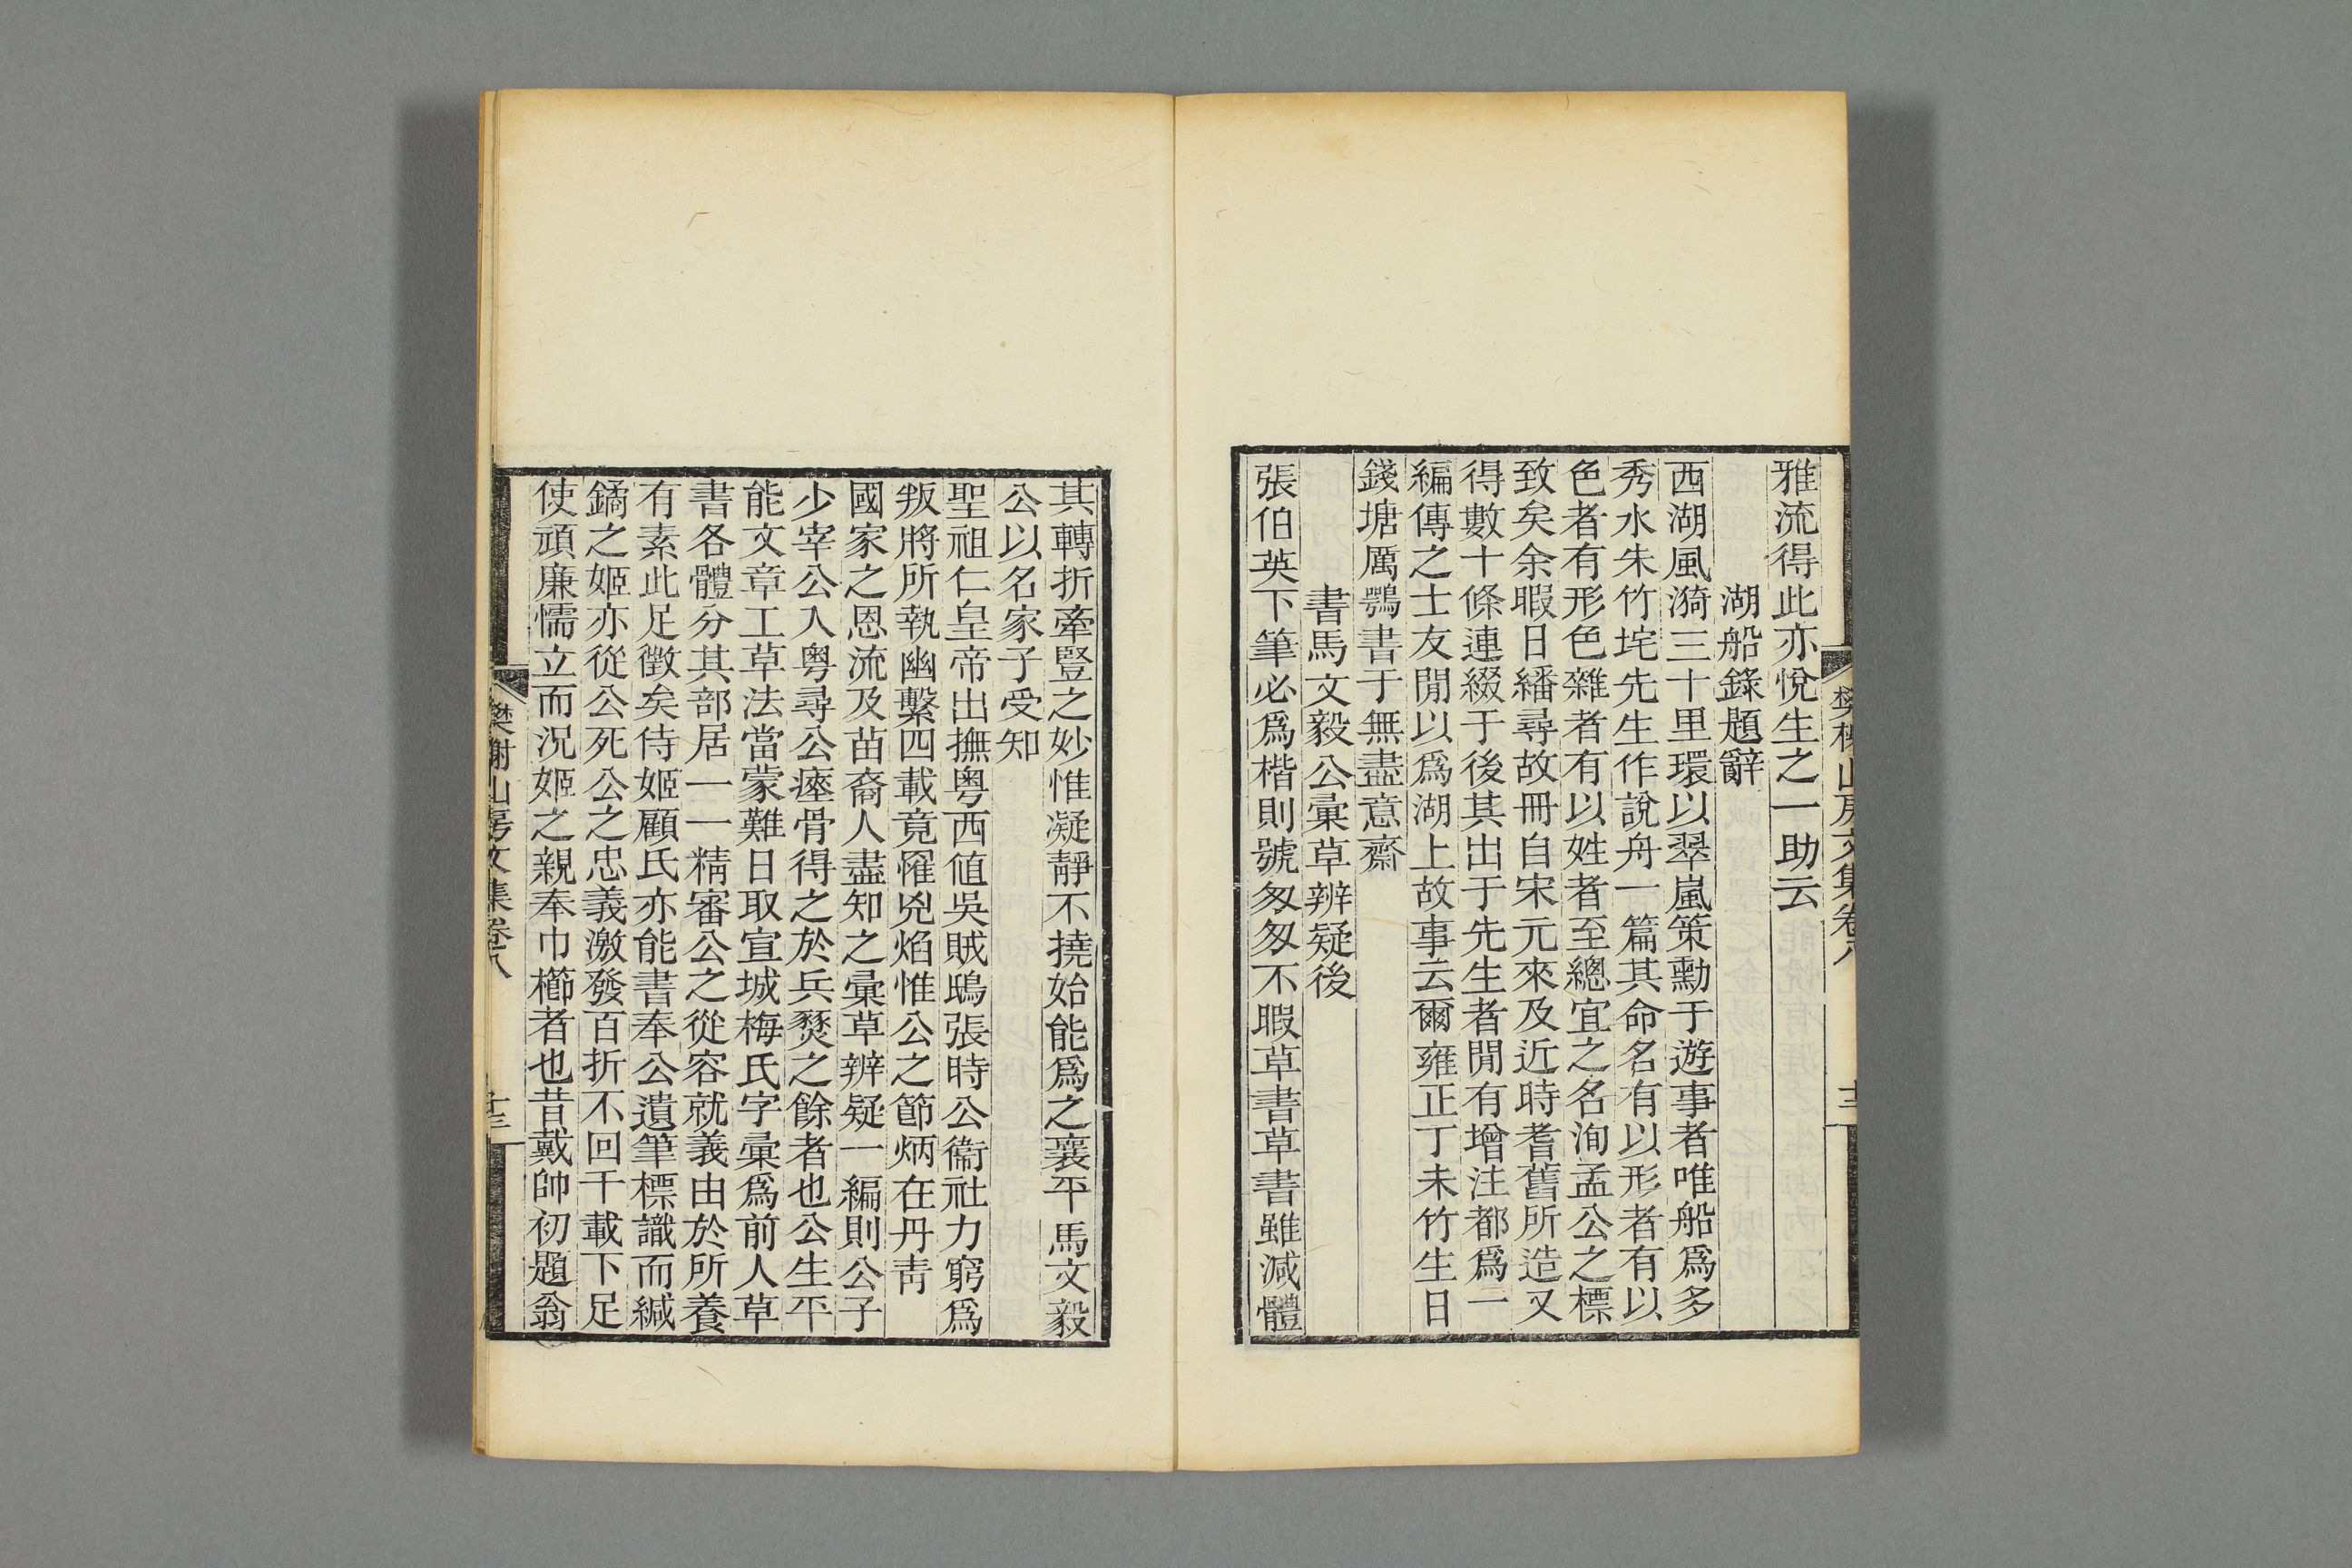 雅流得此亦悅生之一助云
湖船錄題辭
西湖風漪三十里環以翠嵐策勳于遊事者唯船爲多
秀水朱竹垞先生作說舟一篇其命名有以形者有以
色者有形色雜者有以姓者至總宜之名洵孟公之標
致矣余暇日繙尋故冊自宋元來及近時耆舊所造又
得數十條連綴于後其出于先生者閒有增注都爲一
編傳之士友閒以爲湖上故事云爾雍正丁未竹生日
錢塘厲鶚書于無盡意齋
書馬文毅公彙草辨疑後
張伯英下筆必爲楷則號匆匆不暇草書草書雖減體
其轉折牽豎之妙惟凝靜不撓始能爲之襄平馬文毅
公以名家子受知
聖祖仁皇帝出撫粵西値吳賊鴟張時公衞社力窮爲
叛將所執幽繫四載竟罹兇焰惟公之節炳在丹靑
國家之恩流及苗裔人盡知之彙草辨疑一編則公子
少宰公入粵尋公瘞骨得之於兵燹之餘者也公生平
能文章工草法當蒙難日取宣城梅氏字彙爲前人草
書各體分其部居一一精審公之從容就義由於所養
有素此足徵矣侍姬顧氏亦能書奉公遺筆標識而緘
鐍之姬亦從公死公之忠義激發百折不回千載下足
使頑廉懦立而況姬之親奉巾櫛者也昔戴帥初題翁
樊榭山房文集卷八
十三